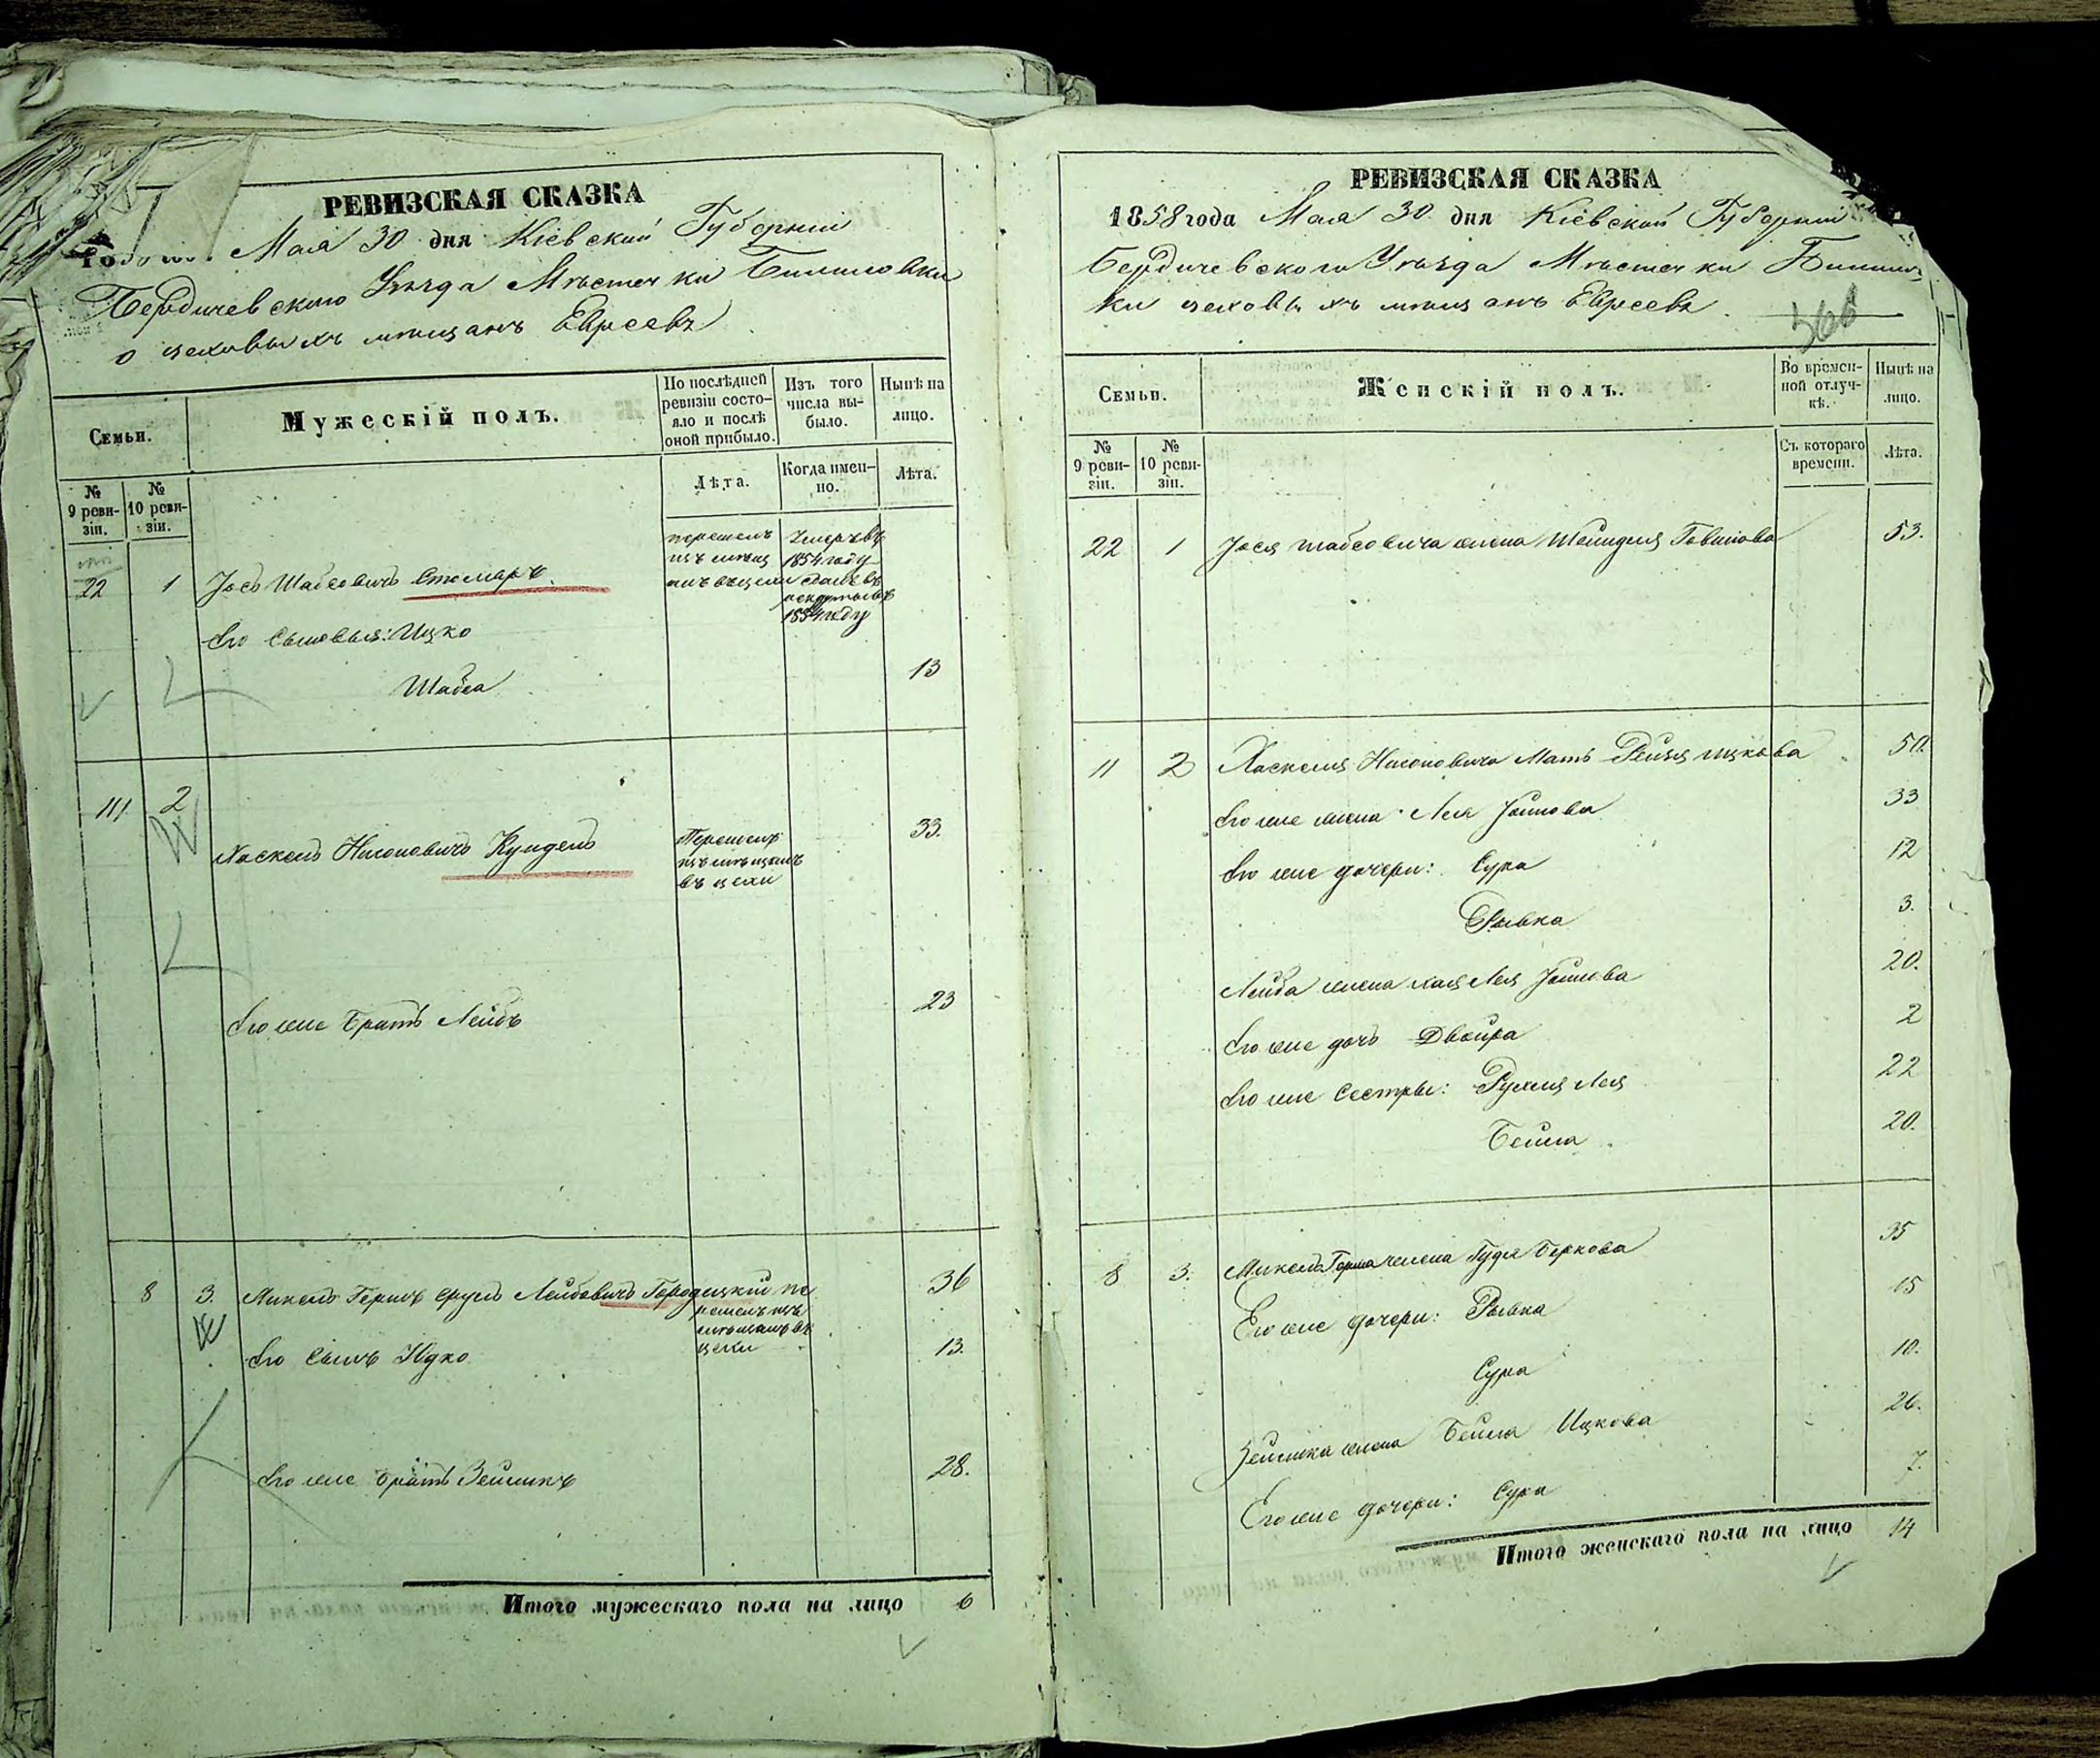 РЕВИЗСКАЯ СКАЗКА
Мая 30 дня Кіевской Губерніи
Бердичевскаго Уѣзда Мѣстечка Билиловки
о цеховыхъ мѣщанъ Евреевъ
Семьи.
Мужескій полъ.
По послѣдней ревизіи состояло и послѣ оной прибыло.
Изъ того числа выбыло.
Нынѣ на лицо.
№ 9 ревизіи.
№ 10 ревизіи.
Лѣта.
Когда именно.
Лѣта.
перешелъ Умеръ въ
изъ мѣщ 1854 году
анъ въ цехи сданъ въ
рекруты въ
1854 году
22 1 Іось Шабсовичъ
Его Сыновья: Ицко
Шабса 13
11 2 Хаскель Нисоновичъ Кундель 33.
Перешелъ
изъ мѣщанъ
въ цехи
Его же Братъ Лейбъ 23
8 3. Михель Гершъ Срулъ Лейбовичъ Городецкій пе 36
решелъ изъ
мѣщанъ въ
цехи
Его Сынъ Юдко 13.
Его же братъ Зейликъ 28.
Итого мужескаго пола на лицо 6
РЕВИЗСКАЯ СКАЗКА
1858 года Мая 30 дня Кіевской Губерніи
Бердичевскаго Уѣзда Мѣстечка Билилов
ки цеховыхъ мѣщанъ Евреевъ.
366
Семьи.
Женскій полъ.
Во временной отлучкѣ.
Нынѣ на лицо.
№ 9 ревизіи.
№ 10 ревизіи.
Съ котораго времени.
Лѣта.
22 1 Іося Шабсовича жена Шейндля 53.
11 2 Хаскеля Нисоновича Мать Рейзя Ицкова 50.
Его же жена Лея 33
Его же дочери: Сура 12
Рывка 3.
Лейба жена Хая Лея 20.
Его же дочь Двойра 2
Его же Сестры: Рухля Лея 22
Бейла 20.
8 3. Михеля Герша жена Гудя Беркова 35
Его же дочери: Рывка 15
Сура 10.
Зейлика жена Бейла Ицкова 26.
Его же дочери: Сура 7.
Итого женскаго пола на лицо 14